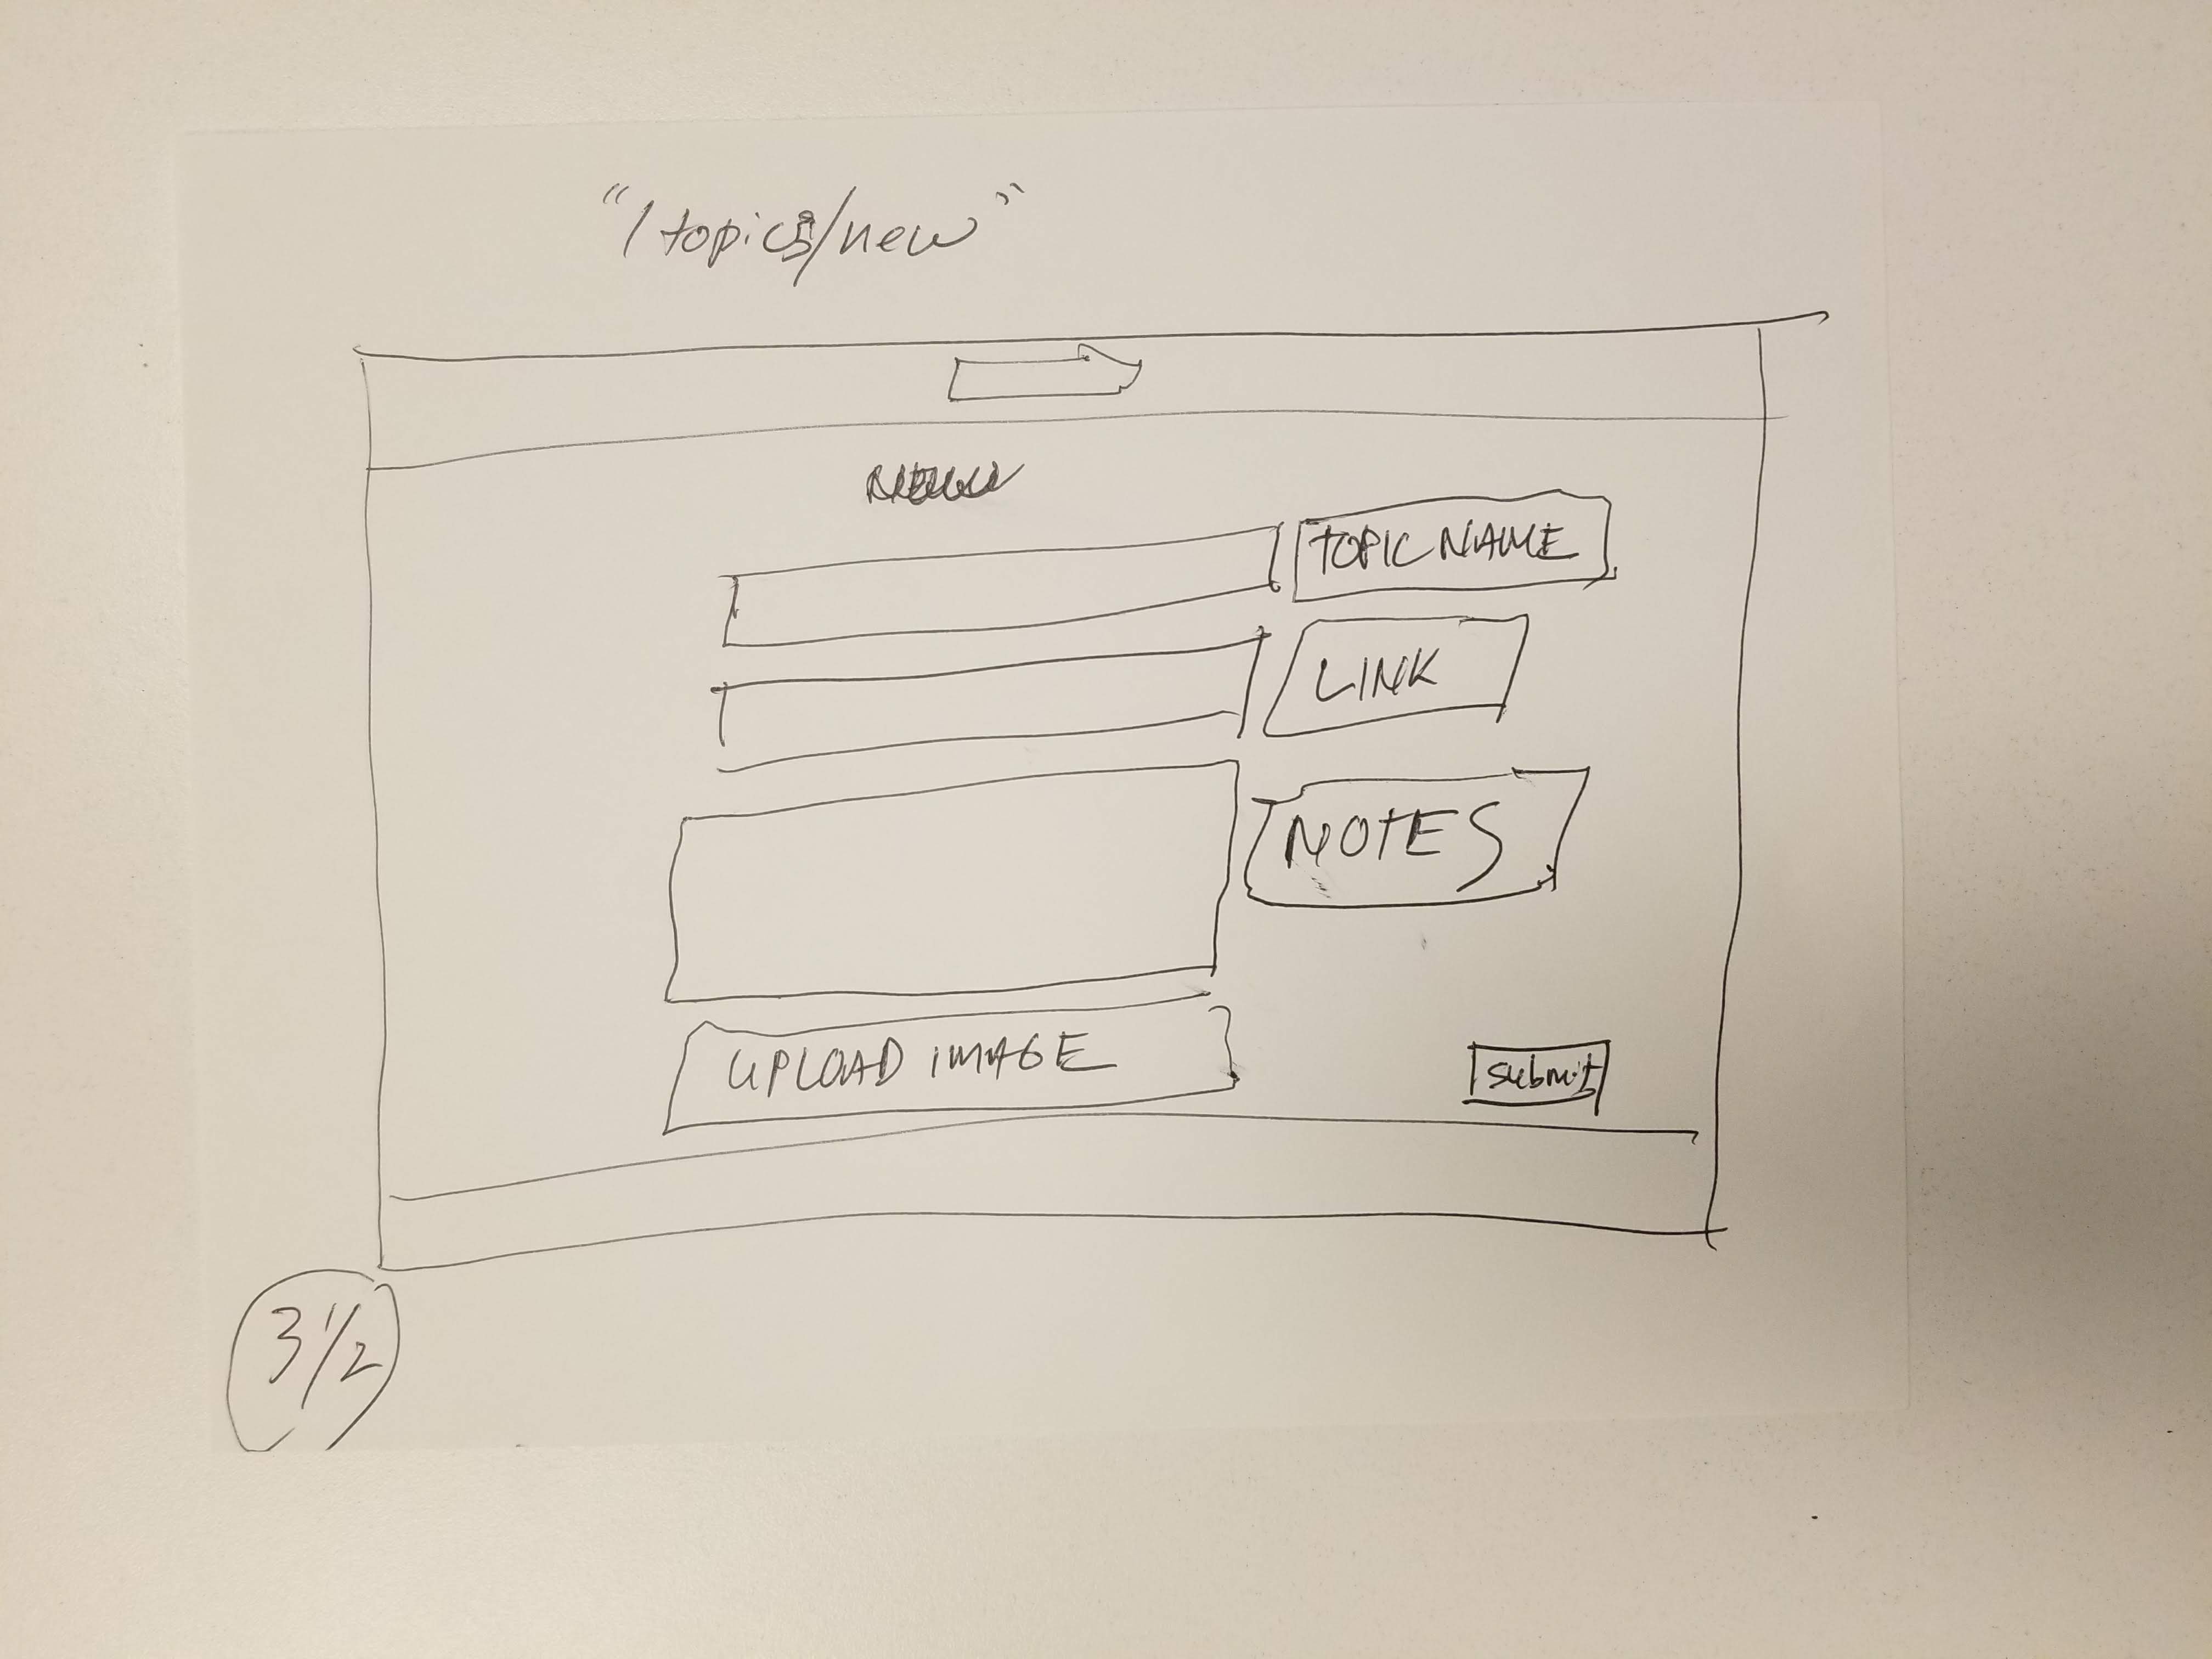 "/topics/new"
TOPIC NAME
LINK
NOTES
UPLOAD IMAGE
submit
3 1/2